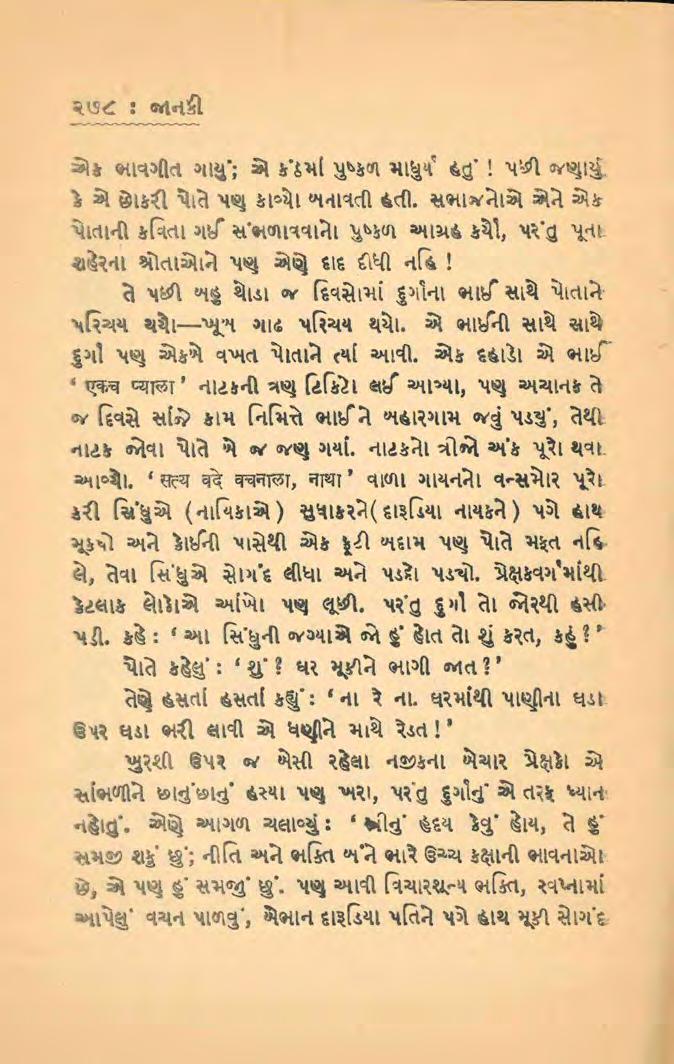 ૨૭૮ : જાનકી
એક ભાવગીત ગાયું; એ કંઠમાં પુષ્કળ માધુર્ય હતું ! પછી જણાયું
કે એ છોકરી પોતે પણ કાવ્યો બનાવતી હતી. સભાજનોએ એને એક
પોતાની કવિતા ગઈ સંભળાવવાનો પુષ્કળ આગ્રહ કર્યો, પરંતુ પૂના
શહેરના શ્રોતાઓને પણ એણે દાદ દીધી નહિ !
તે પછી બહુ થોડા જ દિવસોમાં દુર્ગાના ભાઈ સાથે પોતાને
પરિચય થયો—ખૂબ ગાઢ પરિચય થયો. એ ભાઈની સાથે સાથે
દુર્ગા પણ એકબે વખત પોતાને ત્યાં આવી. એક દહાડો એ ભાઈ
‘ एकच प्याला ’ નાટકની ત્રણ ટિકિટો લઈ આવ્યા, પણ અચાનક તે
જ દિવસે સાંજે કામ નિમિત્તે ભાઈને બહારગામ જવું પડયું, તેથી
નાટક જોવા પોતે બે જ જણ ગયાં. નાટકનો ત્રીજો અંક પૂરો થવા
આવ્યો. ‘ सत्य वदे वचनाला, नाथा ’ વાળા ગાયનનો વન્સમોર પૂરો
કરી સિંધુએ (નાયિકાએ) સુધાકરને(દારૂડિયા નાયકને) પગે હાથ
મૂક્યો અને કોઈની પાસેથી એક ફૂટી બદામ પણ પોતે મફત નહિ
લે, તેવા સિંધુએ સોગંદ લીધા અને પડદો પડ્યો. પ્રેક્ષકવર્ગમાંથી
કેટલાક લોકોએ આંખો પણ લૂછી. પરંતુ દુર્ગા તો જોરથી હસી
પડી. કહે : ‘ આ સિંધુની જગ્યાએ જો હું હોત તો શું કરત, કહું ? ’
પોતે કહેલું : ‘ શું ? ઘર મૂકીને ભાગી જાત ? ’
તેણે હસતાં હસતાં કહ્યું : ‘ ના રે ના. ઘરમાંથી પાણીના ઘડા
ઉપર ઘડા ભરી લાવી એ ધણીને માથે રેડત ! ’
ખુરશી ઉપર જ બેસી રહેલા નજીકના બેચાર પ્રેક્ષકો એ
સાંભળીને છાનું છાનું હસ્યા પણ ખરા, પરંતુ દુર્ગાનું એ તરફ ધ્યાન
નહોતું. એણે આગળ ચલાવ્યું : ‘ સ્ત્રીનું હૃદય કેવું હોય, તે હું
સમજી શકું છું; નીતિ અને ભક્તિ બંને ભારે ઉચ્ચ કક્ષાની ભાવનાઓ
છે, એ પણ હું સમજું છું. પણ આવી વિચારશૂન્ય ભક્તિ, સ્વપ્નામાં
આપેલું વચન પાળવું, બેભાન દારૂડિયા પતિને પગે હાથ મૂકી સોગંદ